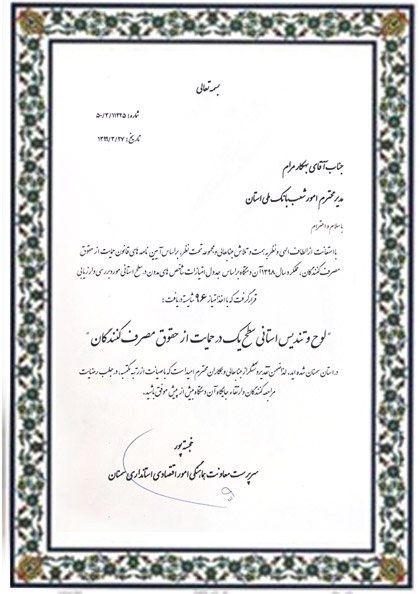 بسمه تعالی
شماره: ۵۰/۳/۱۱۲۲۵
تاریخ: ۱۳۹۹/۳/۲۷
جناب آقای بهکار مرام
مدیر محترم امور شعب بانک ملی استان
با سلام و احترام
با استعانت از الطاف الهی و نظر به همت و تلاش جنابعالی و مجموعه تحت نظر، براساس آیین نامه های قانون حمایت از حقوق
مصرف کنندگان، عملکرد سال ۱۳۹۸ آن دستگاه براساس جدول امتیازات شاخص های مدون در سطح استانی مورد بررسی و ارزیابی
قرار گرفت که با اخذ امتیاز ۹۶ شایسته دریافت:
"لوح و تندیس استانی سطح یک در حمایت از حقوق مصرف کنندگان"
در استان سمنان شده اید. لذا ضمن تقدیر و تشکر از جنابعالی و همکاران محترم امید است که با صیانت از رتبه مکتسبه، در جلب رضایت
مراجعه کنندگان و ارتقاء جایگاه آن دستگاه بیش از پیش موفق باشید.
خجسته پور
سرپرست معاونت هماهنگی امور اقتصادی استانداری سمنان